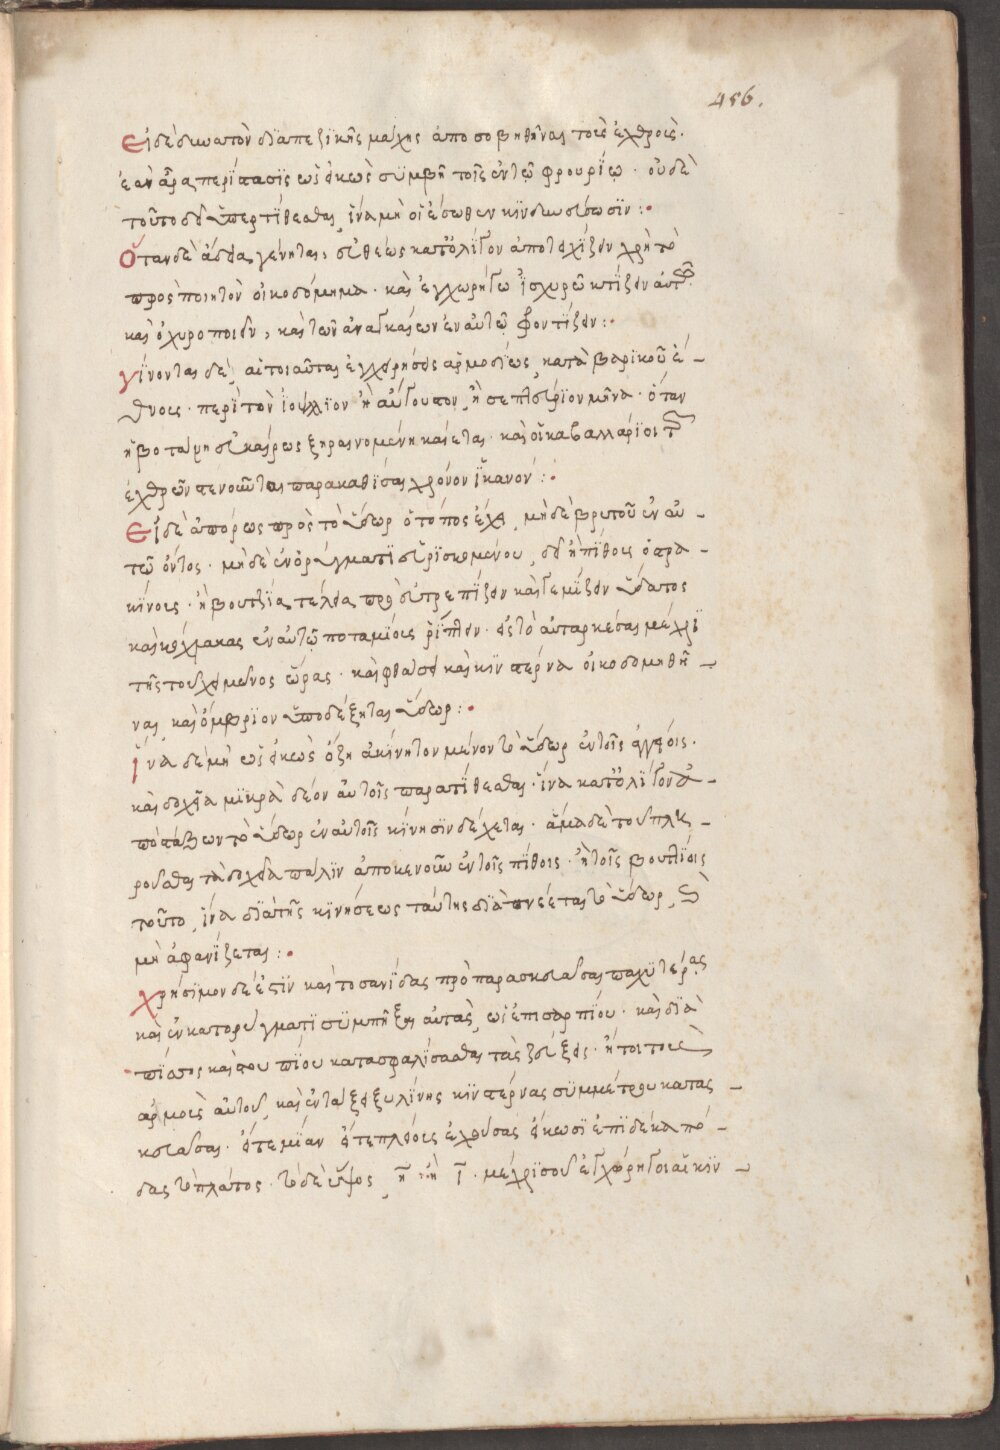 456.
Εἰ δὲ δυνατὸν διὰ πεζικῆς μάχης ἀποσοβηθῆναι τοὺς ἐχθροὺς.
ἐὰν ἄρα περίστασϊς ὡς εἰκὼς συμβῆ τοῖς ἐν τῷ φρουρίῳ. οὐδὲ
τοῦτο δεῖ ὑπερτίθεσθαι, ἵνα μὴ οἱ ἔσωθεν κϊνδυνεύσωσϊν:
Ὅταν δὲ ἄδεια γένηται, εὐθέως κατ' ὀλίγον ἀποτειχίζειν χρὴ τὸ
πρὸς ποιητὸν οἰκοδόμημα. καὶ ἐγχωρήγῳ ἰσχυρῶ κτίζειν αὐτὸ.
καὶ ὀχυροποιεῖν, καὶ τῶν ἀναγκαίων ἐν αὐτῶ φροντίζειν:
γίνονται δὲ, αἱ τοιαῦται ἐγχειρήσεις ἁρμοδίως, κατὰ βαρϊκοῦ ἔ-
θνους. περὶ τὸν ἰούλϊον ἢ αὔγουστον, ἢ σεπτέβριον μῆνα. ὅταν
ἡ βοτάνη εὐκαίρως ξηραινομένη καίεται. καὶ οἱ καβαλλάριοι τῶν
ἐχθρῶν στενοῦνται παρακαθίσαι χρόνον ϊκανόν:
Εἰ δὲ ἀπόρως πρὸς τὸ ὕδωρ ὁ τόπος ἔχει, μὴ δὲ βρυτοῦ ἐν αὐ-
τῶ ὄντος. μὴ δὲ ἐν ὀρύγματι εὑρισκομένου, δεῖ ἢ πίθους ὀστρα-
κίνους. ἢ βουτζία τέλεια προευτρεπίζειν καὶ γεμίζειν ὕδατος
καὶ κόχλακας ἐν αὐτῷ ποταμίους ῥίπτειν. εἰς τὸ αὐταρκέσαι μέχρϊ
τῆς τοῦ χειμῶνος ὥρας. καὶ φθάσει καὶ κϊνστέρνα οἰκοδομηθῆ-
ναι, καὶ ὄμβριον ὑποδέξηται ὕδωρ:
Ἵνα δὲ μὴ ὡς εἰκὼς ὄζῃ ἀκίνητον μένον τὸ ὕδωρ ἐν τοῖς ἀγγείοις.
καὶ δοχεῖα μϊκρὰ δέον αὐτοῖς παρατίθεσθαι. ἵνα κατ' ὀλίγον ἀ-
ποστάζων τὸ ὕδωρ ἐν αὐτοῖς κϊνησϊν δέχεται. ἅμα δὲ τοῦ πλη-
ροῦσθαι τὰ δοχεῖα πάλϊν ἀποκενοῦν ἐν τοῖς πίθοις. ἢ τοῖς βουττίοις
τοῦτο, ἵνα διὰ τῆς κϊνήσεως ταύτης διαπνέεται τὸ ὕδωρ, καὶ
μὴ ἀφανίζεται:
χρήσϊμον δέ ἐστϊν καὶ το σανίδας προπαρασκευάσαι παχυτέρας
καὶ ἐν κατορύγματϊ συμπῆξαι αὐτὰς, ὡς ἐπὶ σαρπίου. καὶ διὰ
πίσσης καὶ στουπίου κατασφαλίσασθαι τὰς ζεύξεις. ἤτοι τοὺς
ἁρμοὺς αὐτοῦ, καὶ ἐν τάξει ξυλίνης κϊνστέρνας συμμέτρου κατας-
κευάσαι. εἴτε μίαν εἴτε πλείους ἐχούσας εἴκωσϊ ἐπὶ δέκα πό-
δας τὸ πλάτος. τὸ δὲ ὕψος, η ἢ ι. μέχρϊς οὗ ἐγχώρηγοι αἱ κϊν-